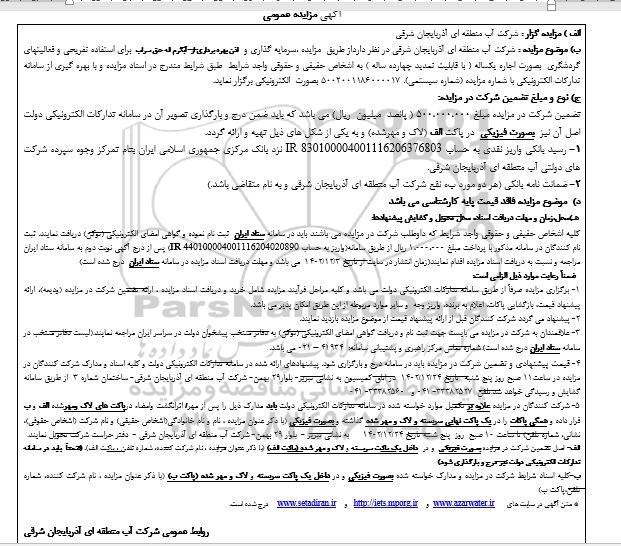 آگهی مزایده عمومی
الف ) مزایده گزار : شرکت آب منطقه ای آذربایجان شرقی
ب) موضوع مزایده : شرکت آب منطقه ای آذربایجان شرقی در نظر دارداز طریق مزایده ،سرمایه گذاری و برای استفاده تفریحی و فعالیتهای
گردشگری بصورت اجاره یکساله ( با قابلیت تمدید چهارده ساله ) به اشخاص حقیقی و حقوقی واجد شرایط طبق شرایط مندرج در اسناد مزایده و با بهره گیری از سامانه
تدارکات الکترونیکی با شماره مزایده (شماره سیستمی). ۵۰۰۲۰۰۱۱۸۶۰۰۰۰۱۷ بصورت الکترونیکی برگزار نماید.
ج) نوع و مبلغ تضمین شرکت در مزایده:
تضمین شرکت در مزایده مبلغ ۵۰۰.۰۰۰.۰۰۰ ( پانصد میلیون ریال) می باشد که باید ضمن درج و بارگذاری تصویر آن در سامانه تدارکات الکترونیکی دولت
اصل آن نیز بصورت فیزیکی در پاکت الف (لاک و مهرشده) و به یکی از شکل های ذیل تهیه و ارائه گردد.
۱- رسید بانکی واریز نقدی به حساب IR 830100004001116206376803 نزد بانک مرکزی جمهوری اسلامی ایران بنام تمرکز وجوه سپرده شرکت
های دولتی آب منطقه ای آذربایجان شرقی.
۲- ضمانت نامه بانکی (هر دو مورد به نفع شرکت آب منطقه ای آذربایجان شرقی و به نام متقاضی باشد.)
د) موضوع مزایده فاقد قیمت پایه کارشناسی می باشد
ه-محل،زمان و مهلت دریافت اسناد ،محل تحویل و گشایش پیشنهادها:
کلیه اشخاص حقیقی و حقوقی واجد شرایط که داوطلب شرکت در مزایده می باشند باید در سامانه ستاد ایران ثبت نام نموده و گواهی امضای الکترونیکی (توکن) دریافت نمایند. ثبت
نام کنندگان در سامانه مذکور با پرداخت مبلغ ۱.۰۰۰.۰۰۰ ریال از طریق سامانه(واریز به حساب IR 440100004001116204020890) پس از درج آگهی نوبت دوم به سامانه ستاد ایران
مراجعه و نسبت به دریافت اسناد مزایده اقدام نمایند(زمان انتشار در سایت از تاریخ ۱۴۰۲/۱۲/۳ می باشد و مهلت دریافت اسناد مزایده در سامانه ستاد ایران درج شده است)
ضمناً رعایت موارد ذیل الزامی است:
۱- برگزاری مزایده صرفاً از طریق سامانه تدارکات الکترونیکی دولت می باشد و کلیه مراحل فرآیند مزایده شامل خرید و دریافت اسناد مزایده ، ارائه تضمین شرکت در مزایده (ودیعه)، ارائه
پیشنهاد قیمت، بازگشایی پاکات، اعلام به برنده، واریز وجه و سایر موارد مربوطه از این طریق امکان پذیر می باشد.
۲- پیشنهاد می گردد شرکت کنندگان قبل از ارائه پیشنهاد قیمت از موضوع مزایده بازدید نمایند.
۳- علاقمندان به شرکت در مزایده می بایست جهت ثبت نام و دریافت گواهی امضای الکترونیکی (توکن) به دفاتر منتخب پیشخوان دولت در سراسر ایران مراجعه نمایند(لیست دفاتر منتخب در
سامانه ستاد ایران درج شده است) شماره تماس مرکز راهبری و پشتیبانی سامانه: ۴۱۹۳۴ – ۰۲۱ می باشد.
۴- قیمت پیشنهادی و تضمین شرکت در مزایده باید در سامانه درج و بارگزاری شود. پیشنهادهای ارائه شده در سامانه تدارکات الکترونیکی دولت و کلیه اسناد و مدارک شرکت کنندگان در
مزایده در ساعت۱۱ صبح روز پنج شنبه تاریخ ۱۴۰۲/۱۲/۲۴ در اتاق کمیسیون به نشانی تبریز- بلوار۲۹ بهمن- شرکت آب منطقه ای آذربایجان شرقی- ساختمان شماره ۳ از طریق سامانه
گشایش و رسیدگی خواهد شد.تلفن
۵- شرکت کنندگان در مزایده علاوه بر تکمیل موارد خواسته شده در سامانه تدارکات الکترونیکی دولت باید مدارک ذیل را پس از مهر/ اثرانگشت وامضاء درپاکت های لاک ومهرشده الف و ب
قرار داده و همگی پاکات را در یک پاکت نهایی سربسته و لاک و مهر شده گذاشته و بصورت فیزیکی (با ذکر عنوان مزایده ، نام و نام خانوادگی(اشخاص حقیقی) و نام شرکت (اشخاص حقوقی)،
نشانی، شماره تلفن) تا ساعت ۱۰ صبح روز پنج شنبه تاریخ ۱۴۰۲/۱۲/۲۴ به نشانی تبریز - بلوار ۲۹ بهمن- شرکت آب منطقه ای آذربایجان شرقی - دفتر حراست شرکت تحویل نمایند.
الف- اصل تضمین شرکت در مزایده بصورت فیزیکی و در داخل یک پاکت سربسته و لاک و مهر شده (پاکت الف) (با ذکر عنوان مزایده ، نام شرکت کننده، شماره تلفن ، پاکت الف). (ضمناً باید در سامانه
تدارکات الکترونیکی دولت نیز درج و بارگذاری شود)
ب-کلیه اسناد شرایط شرکت در مزایده و مدارک خواسته شده بصورت فیزیکی و در داخل یک پاکت سربسته و لاک و مهر شده (پاکت ب) (با ذکر عنوان مزایده ، نام شرکت کننده، شماره
تلفن،پاکت ب)
* متن آگهی در سایت های www.azarwater.ir و http://iets.mporg.ir و www.setadiran.ir درج شده است.
روابط عمومی شرکت آب منطقه ای آذربایجان شرقی